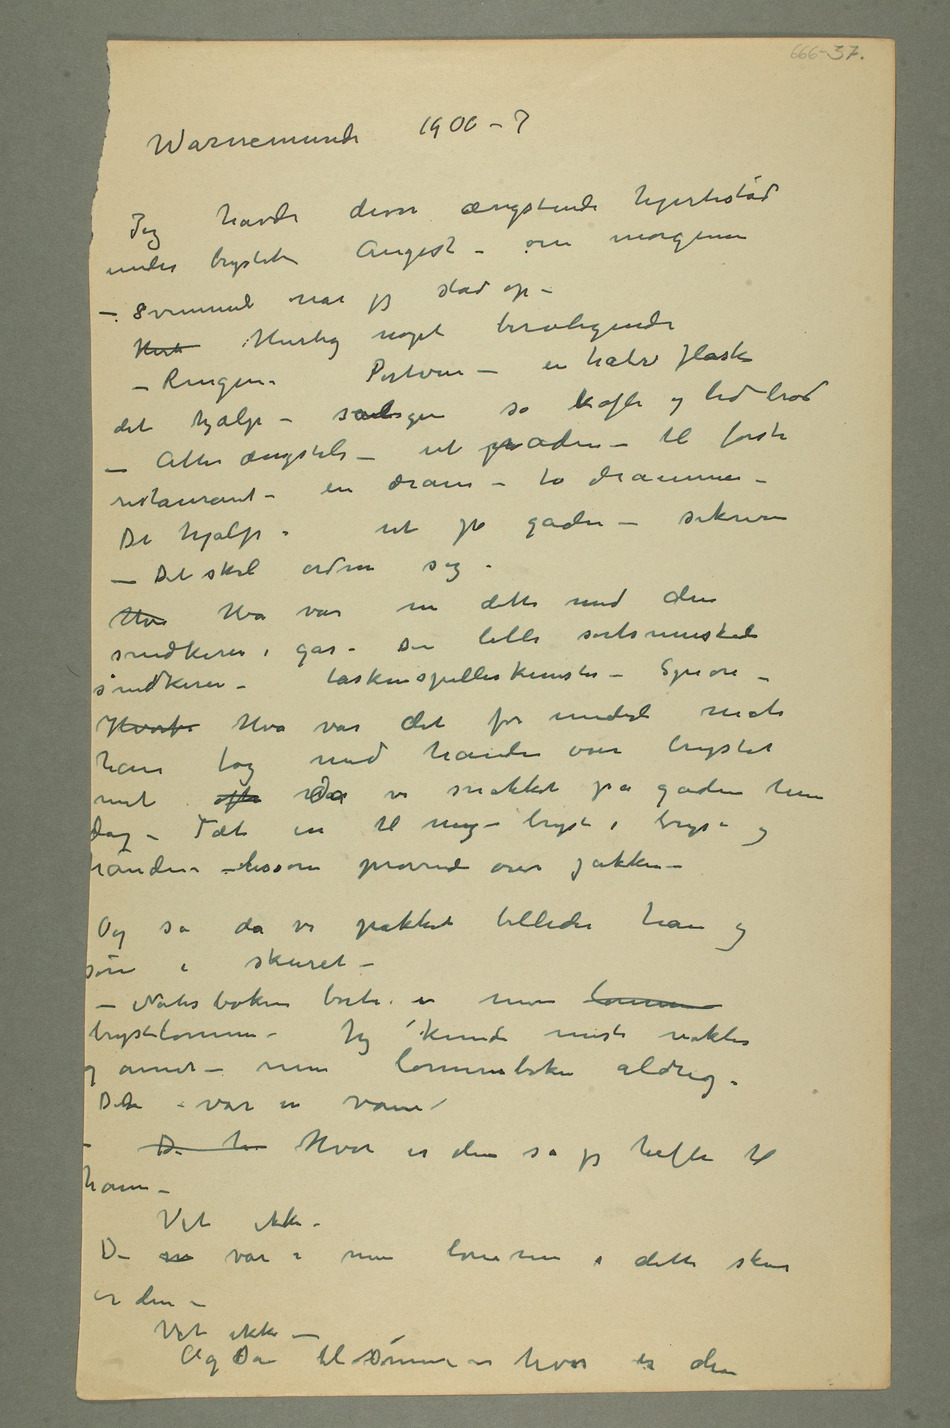 666-37.
Warnemunde 1906-7
Jeg havde disse ængstende hjertestød
under brystet Angest – om morgenen
– svimmel nar jeg stod op –
Hurtig noget beroligende
– Ringen. Portvin – en halv flaske
det hjalp – så kaffe og lidt brød
– Atter ængstelse – ut – til første
restaurant – en dram – to drammer –
Det hjalp. ut på gaden – 
– Det skal ordne seg.
Hva Hva var nu dette med den
snedkeren i gar – Den lille sortsmuskede
snedkeren – taskenspillerkunster – Spion –
Hvorfor Hva var det for underlig måte
han tog med handen over brystet
mit ofte da vi snakket på gaden
dag – Tæt in til mig – bryst i bryst og
hånden – lissom prøvende over jakken –
Og så da vi pakket billeder han og
i skuret –
– Notisboken borte i min lomme
brystlomme – Jeg kunde miste nøkler
og annet – men lommeboken aldrig.
Det var en vane –
– Hvor er den sa jeg heftig til
ham –
Vet ikke –
Den var i min lomme i dette skur
er den –
Vet ikke –
Og Da til hvor er den